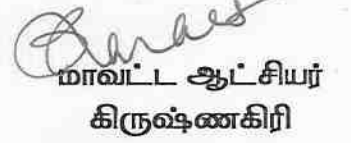 மாவட்ட ஆட்சியர்
கிருஷ்ணகிரி